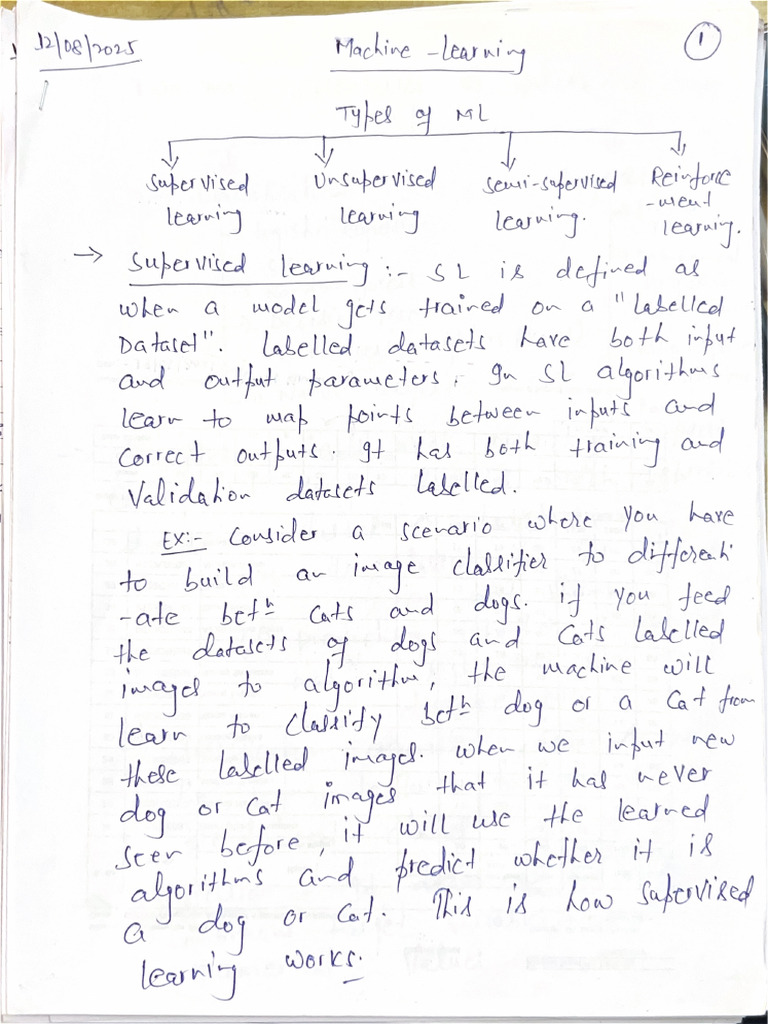 12/08/2025
Machine -Learning
1
Types of ML
Supervised learning
Unsupervised learning
Semi-supervised learning.
Reinforce -ment learning.
→ Supervised learning :- SL is defined as
when a model gets trained on a "Labelled
Dataset". Labelled datasets have both input
and output parameters. In SL algorithms
learn to map points between inputs and
correct outputs. It has both training and
Validation datasets labelled.
Ex:- Consider a scenario where you have
to build an image classifier to differenti
-ate betn cats and dogs. if you feed
the datasets of dogs and cats labelled
images to algorithm, the machine will
learn to classify betn dog or a cat from
these labelled images. when we input new
dog or cat images that it has never
seen before, it will use the learned
algorithms and predict whether it is
a dog or cat. This is how supervised
learning works.